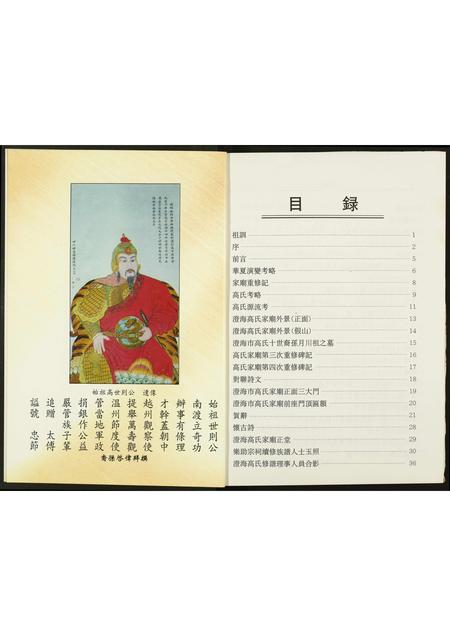 始祖高世則公　遺像
始祖世則公
南渡立奇功
辦事有條理
才幹蓋朝中
越州觀察使
提舉萬壽觀
溫州節度使
管當地軍政
捐銀作公益
嚴管族子輩
追贈　太傅
諡號　忠節
裔孫啓偉拜撰
目　錄
祖訓 1
序 2
前言 5
華夏演變考略 6
家廟重修記 8
高氏考略 9
高氏源流考 11
澄海高氏家廟外景(正面) 13
澄海高氏家廟外景(假山) 14
澄海市高氏十世裔孫月川祖之墓 15
澄海高氏家廟第三次重修碑記 16
澄海高氏家廟第四次重修碑記 17
對聯詩文 18
澄海市高氏家廟正面三大門 19
澄海市高氏家廟前座門頂匾額 20
賀辭 21
懷古詩 27
澄海高氏家廟正堂 29
樂助宗祠續修族譜人士玉照 30
澄海高氏修譜理事人員合影 36